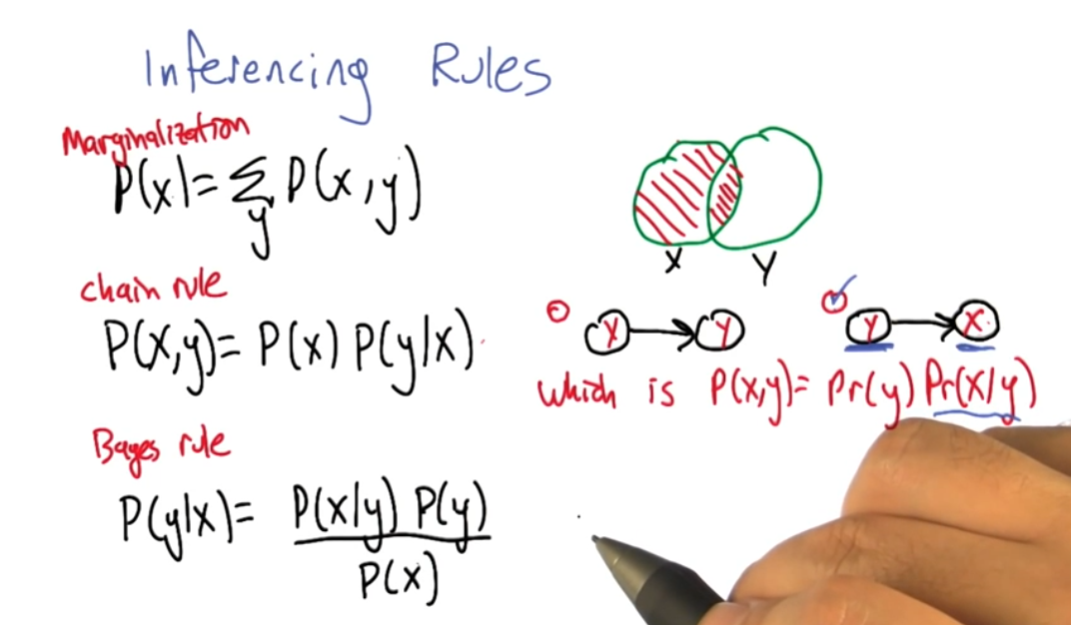 Inferencing Rules
Marginalization
P(x)= Σ P(x,y)
y
chain rule
P(X,y)= P(x) P(y|x).
Bayes rule
P(y|x)= P(x|y) P(y)
P(x)
X Y
X Y
Y X
which is P(x,y)= Pr(y) Pr(x|y)